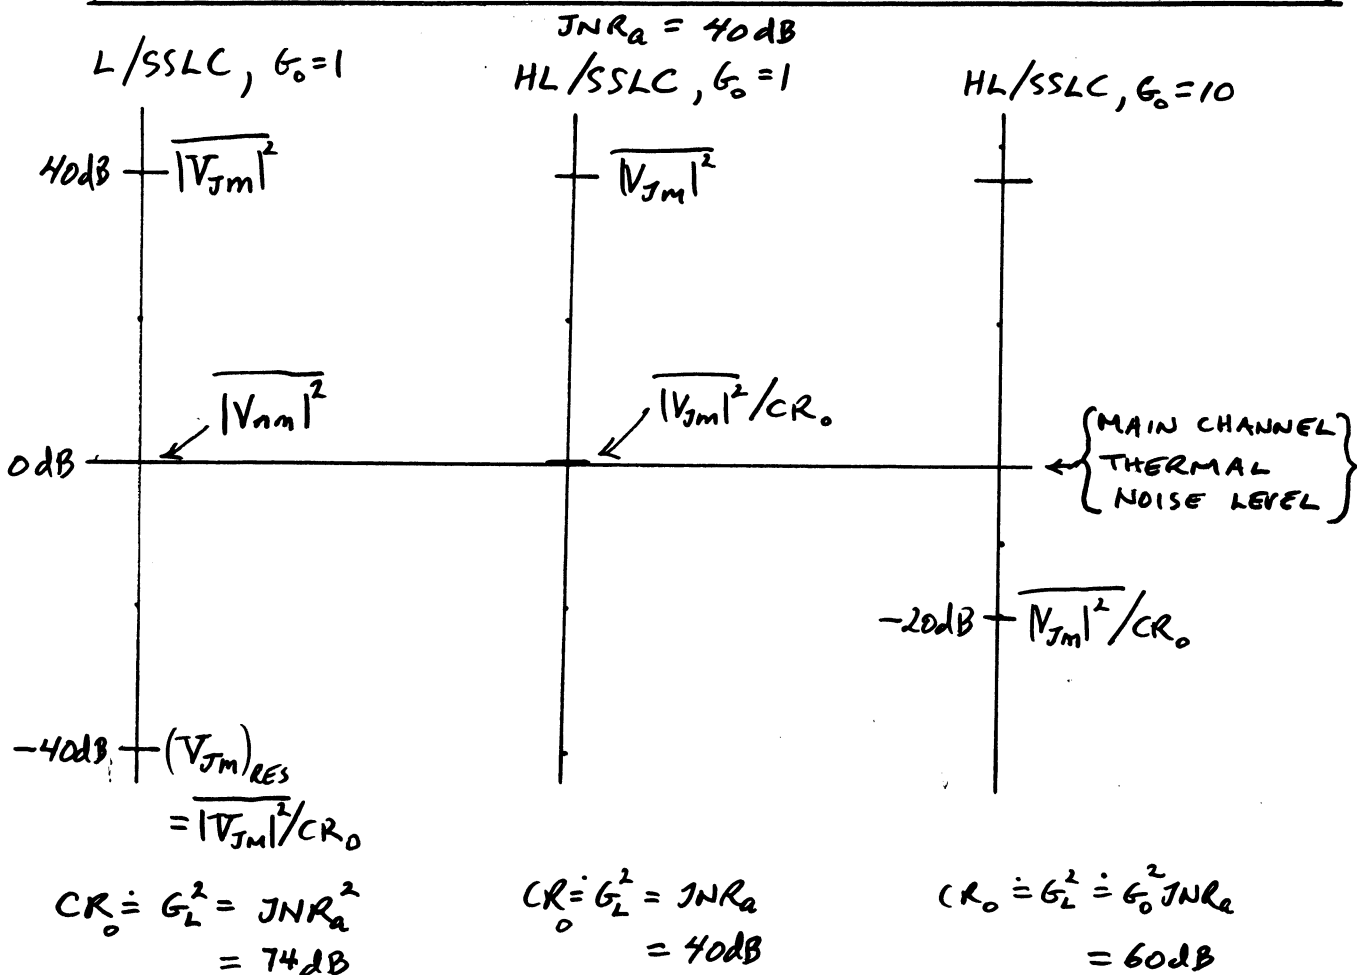 JNRₐ = 40dB
L/SSLC, G₀=1
HL/SSLC, G₀=1
HL/SSLC, G₀=10
40dB |V_Jm|²
|V_Jm|²
|V_nm|²
|V_Jm|²/CR₀
0dB
{MAIN CHANNEL}
THERMAL
NOISE LEVEL
-20dB |V_Jm|²/CR₀
-40dB (V_Jm)_RES
= |V_JM|²/CR₀
CR₀ ≐ G_L² = JNRₐ²
= 74dB
CR₀ ≐ G_L² = JNRₐ
= 40dB
CR₀ ≐ G_L² ≐ G₀² JNRₐ
= 60dB